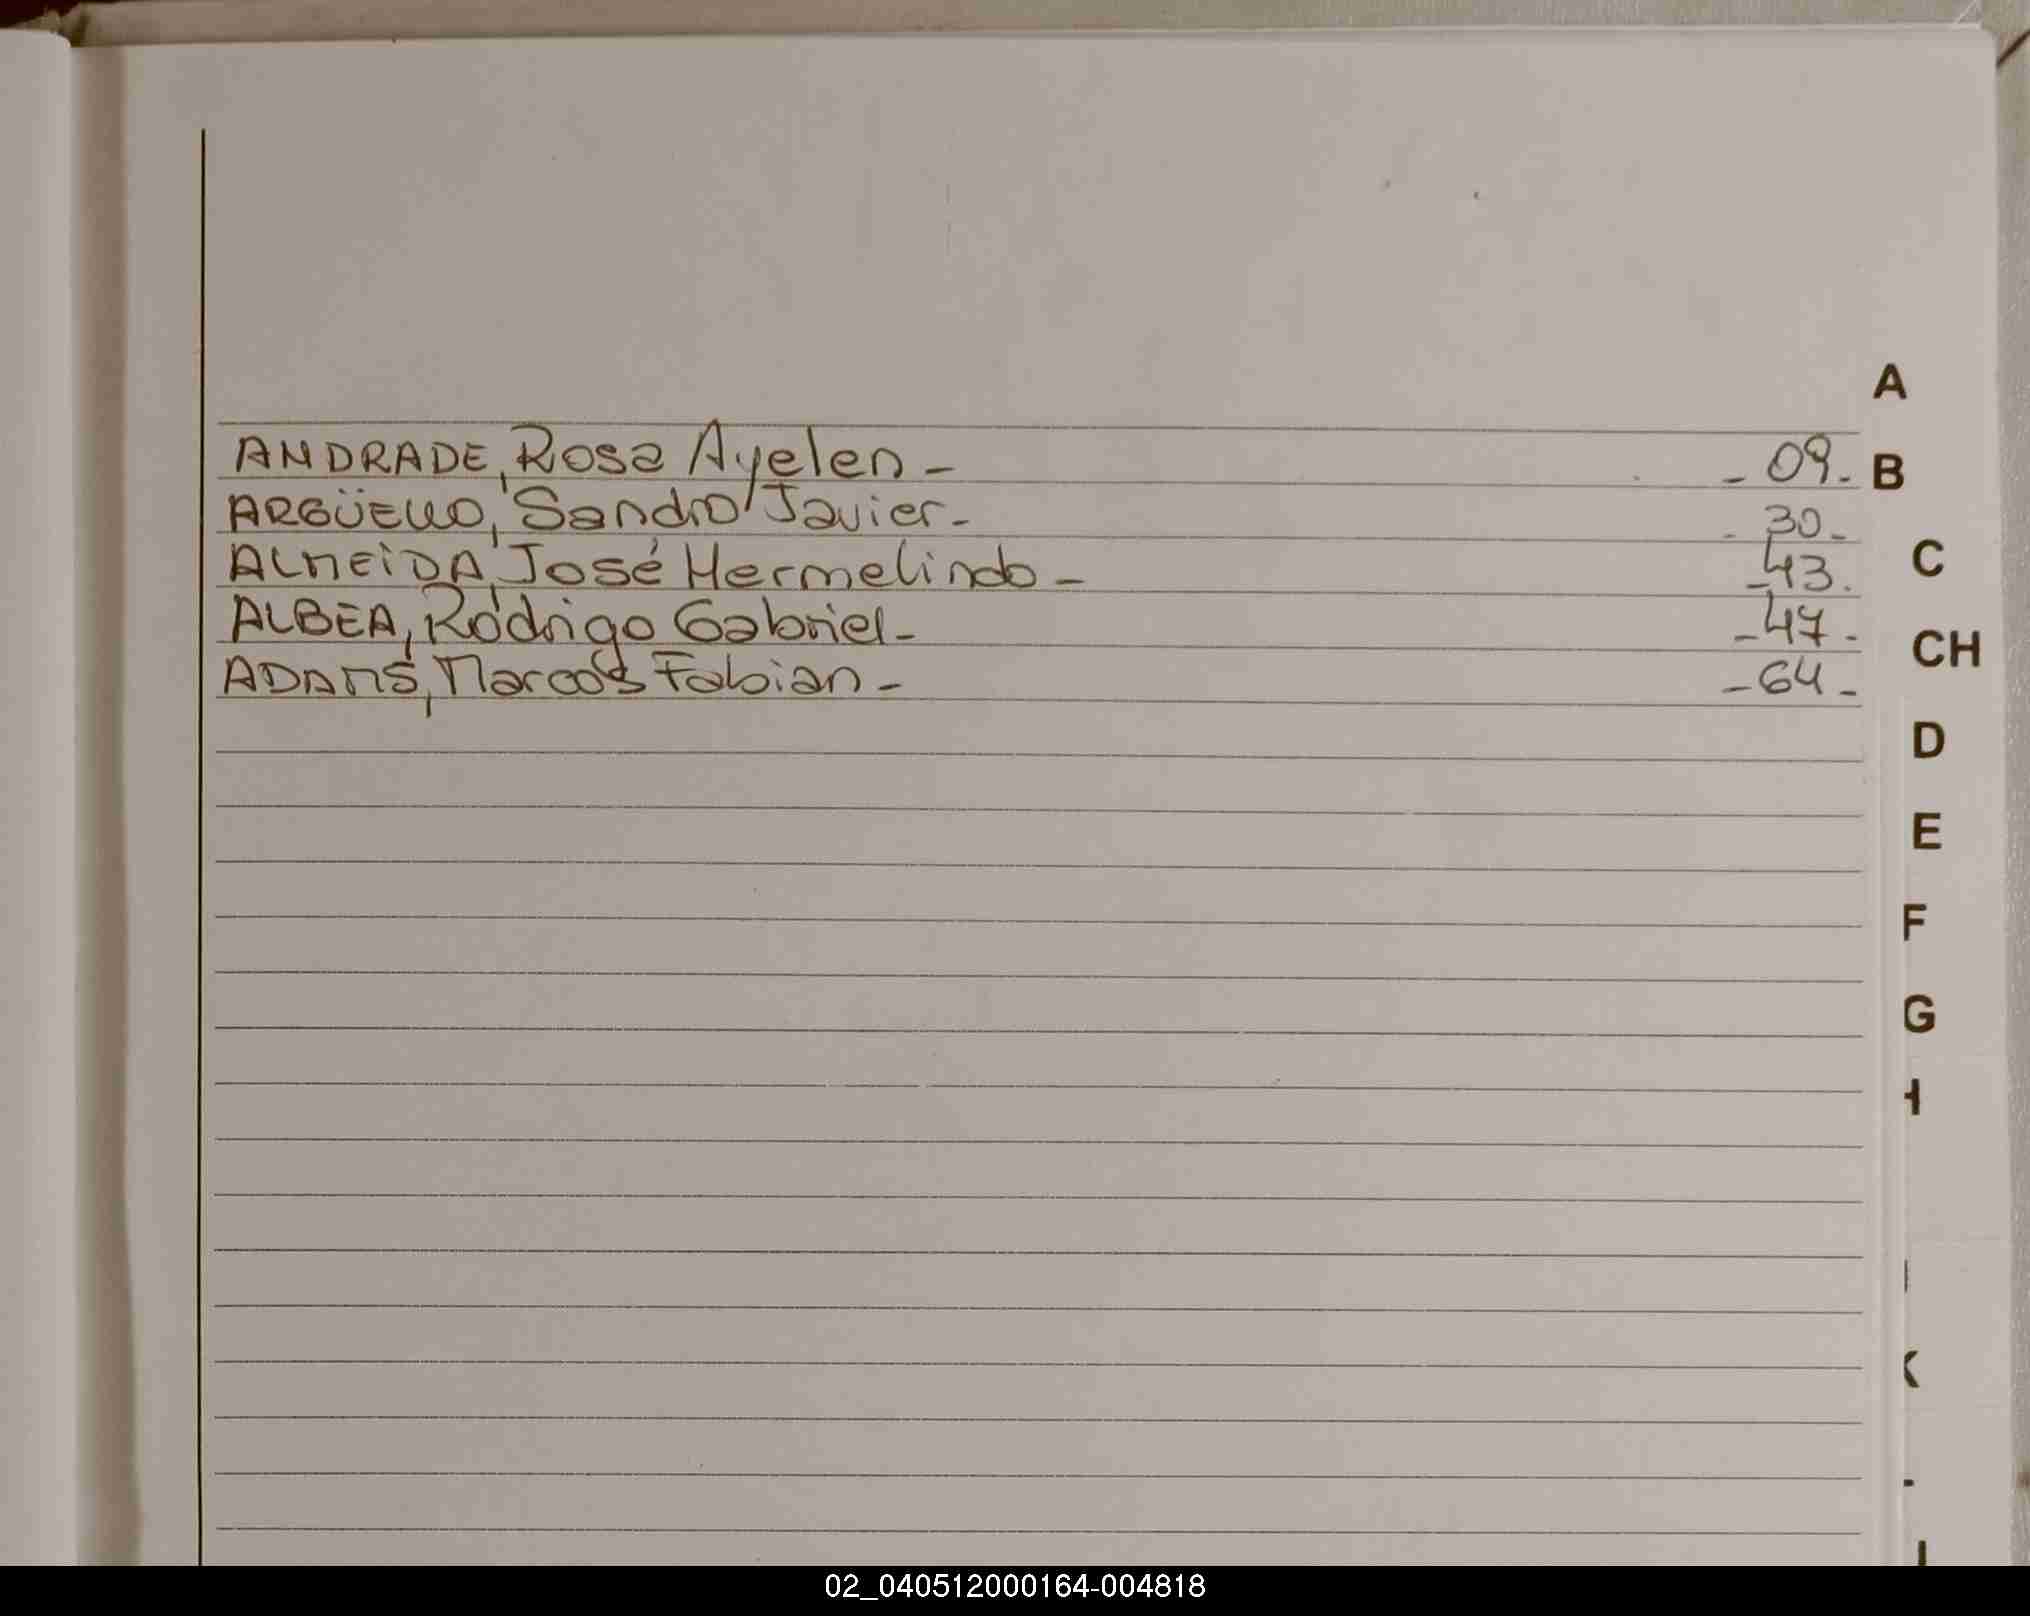 A
ANDRADE, Rosa Ayelen - - 09 -
B
ARGÜELLO, Sandro Javier - - 30 -
ALMEIDA, José Hermelindo - - 43 .
C
ALBEA, Rodrigo Gabriel - - 47 -
CH
ADAMS, Marcos Fabian - - 64 -
D
E
F
G
H
K
02_040512000164-004818